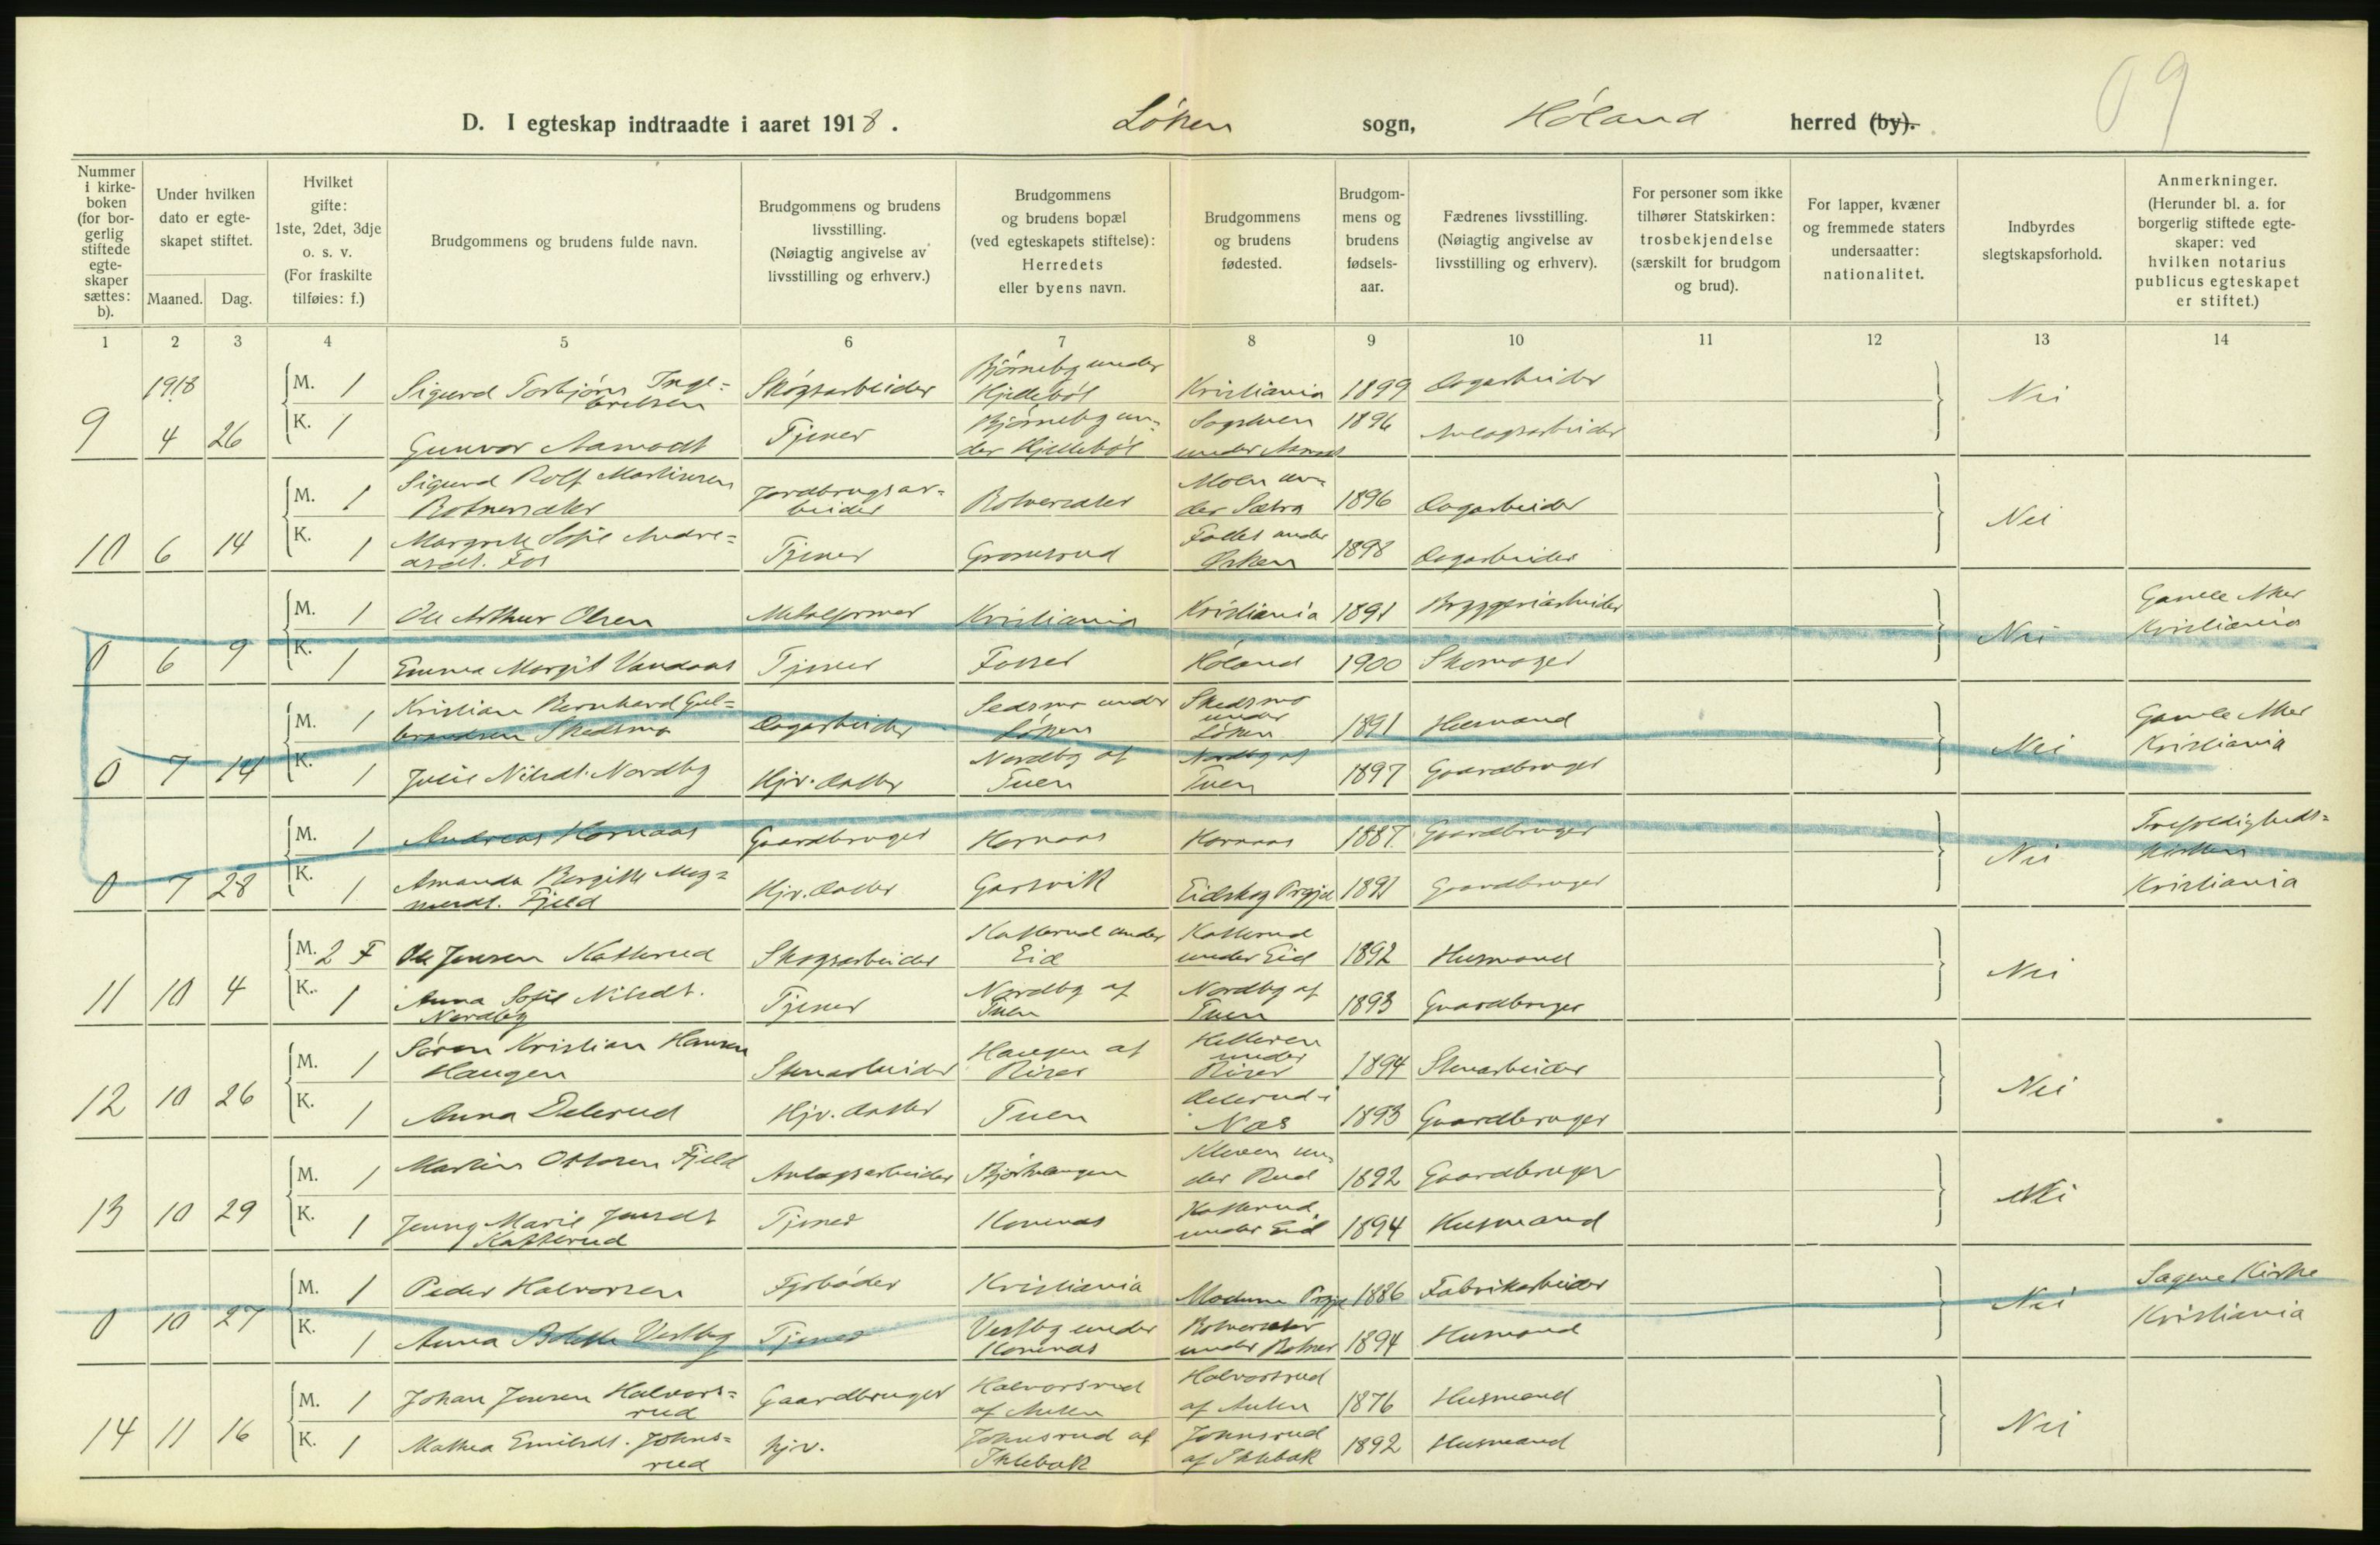 09
D. I egteskap indtraadte i aaret 1918. Løken sogn, Høland herred (by).
Nummer i kirkeboken (for borgerlig stiftede egteskaper sættes: b).
Under hvilken dato er egteskapet stiftet.
Maaned. Dag.
Hvilket gifte: 1ste, 2det, 3dje o. s. v. (For fraskilte tilføies: f.)
Brudgommens og brudens fulde navn.
Brudgommens og brudens livsstilling. (Nøiagtig angivelse av livsstilling og erhverv.)
Brudgommens og brudens bopæl (ved egteskapets stiftelse): Herredets eller byens navn.
Brudgommens og brudens fødested.
Brudgommens og brudens fødselsaar.
Fædrenes livsstilling. (Nøiagtig angivelse av livsstilling og erhverv).
For personer som ikke tilhører Statskirken: trosbekjendelse (særskilt for brudgom og brud).
For lapper, kvæner og fremmede staters undersaatter: nationalitet.
Indbyrdes slegtskapsforhold.
Anmerkninger. (Herunder bl. a. for borgerlig stiftede egteskaper: ved hvilken notarius publicus egteskapet er stiftet.)
1 2 3 4 5 6 7 8 9 10 11 12 13 14
1918 M. 1 Sigurd Torbjørn Inge=brelsen Skogsarbeider Bjørneby under Hjellebøl Kristiania 1899 Dagarbeider Nei
9 4 26 K. 1 Gunvor Aamodt Tjener Bjørneby under Hjellebøl 1896 Anlægsarbeider
M. 1 Sigurd Rolf Martinsen Botnersaler Jordbrugsar=beider Botnersaler Moen under Sætra 1896 Dagarbeider Nei
10 6 14 K. 1 Margrete Sofie Andre=asdt. Fos Tjener Gromsrud under 1898 Dagarbeider
M. 1 Ole Arthur Olsen Metalformer Kristiania Kristiania 1891 Bryggeriarbeider Nei Gamle Aker Kristiania
0 6 9 K. 1 Emma Margit Vandaas Tjener Fosser Høland 1900 Skomager
M. 1 Kristian Bernhard Gul=brandsen Skedsmo Dagarbeider Sedsmo under Løken Skedsmo under Løken 1891 Husmand Nei Gamle Aker Kristiania
0 7 14 K. 1 Julie Nilsdt. Nordby Hjv. datter Nordby af Tuen Nordby af Tuen 1897 Gaardbruger
M. 1 Andreas Hornaas Gaardbruger Hornaas Hornaas 1887 Gaardbruger Nei Trefoldigheds=kirken Kristiania
0 7 28 K. 1 Amanda Bergitte Mag=nusdt. Fjeld Hjv. datter Garsvik Eidskog Prgjd 1891 Gaardbruger
M. 2 F Ole Jensen Katterud Skogsarbeider Katterud under Eid Katterud under Eid 1892 Husmand Nei
11 10 4 K. 1 Anna Sofie Nilsdt. Nordby Tjener Nordby af Tuen Nordby af Tuen 1893 Gaardbruger
M. 1 Søren Kristian Hansen Haugen Stenarbeider Haugen af Riser Helleren under Riser 1894 Stenarbeider Nei
12 10 26 K. 1 Anna Delerud Hjv. datter Tuen Delerud i Nes 1893 Gaardbruger
M. 1 Martin Ottosen Fjeld Anlægsarbeider Bjørhaugen Kleven under Rud 1892 Gaardbruger Nei
13 10 29 K. 1 Jenny Marie Jensdt Katterud Tjener Hornnes Katterud under Eid 1894 Husmand
M. 1 Peder Halvorsen Fyrbøder Kristiania Modum Prgjd 1886 Fabrikarbeider Nei Sagene Kirke Kristiania
0 10 27 K. 1 Anna Bolette Vestby Tjener Vestby under Botnersaler under Botner 1894 Husmand
M. 1 Johan Jensen Halvors=rud Gaardbruger Halvorsrud af Aulen Halvorsrud af Aulen 1876 Husmand Nei
14 11 16 K. 1 Mathea Emilsdt. Johns=rud hjv. Johnsrud af Ihlebæk Johnsrud af Ihlebæk 1892 Husmand